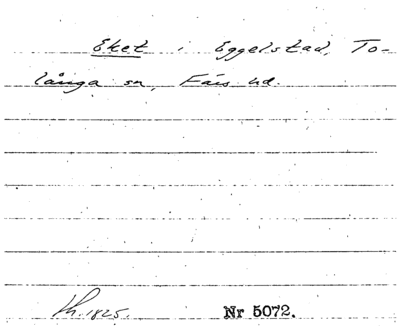 Eket i Eggelstad, To-
långa sn, Färs hd.
Kh. 1825. Nr 5072.